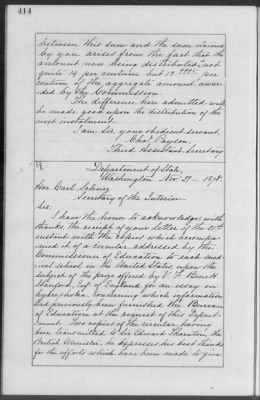 414
between this sum and the sum claimed
by you arises from the fact that the
amount now being distributed, "not
quite 14 per centum but 13 per
centum of the aggregate amount awar-
ded by the Commission.
The difference here admitted will
be made good upon the distribution of the
next instalment.
I am Sir your obedient servant,
Chas Payson,
Third Assistant Secretary
Department of State,
Washington Nov. 27 1878.
Hon. Carl Schurz
Secretary of the Interior
Sir:
I have the honor to acknowledge, with
thanks, the receipt of your letter of the 21st
instant with the copies which accompa-
nied it of a circular addressed by the
Commissioner of Education to each med-
ical school in the United States upon the
subject of the prize offered by
Stanford, Esq. of England, for an essay on
hydrophobia, concerning which information
had previously been furnished the Bureau
of Education at the request of this Depart-
ment. Two copies of the circular, having
been transmitted to Sir Edward Thornton, the
British Minister, he expresses his best thanks
for the efforts which have been made to give